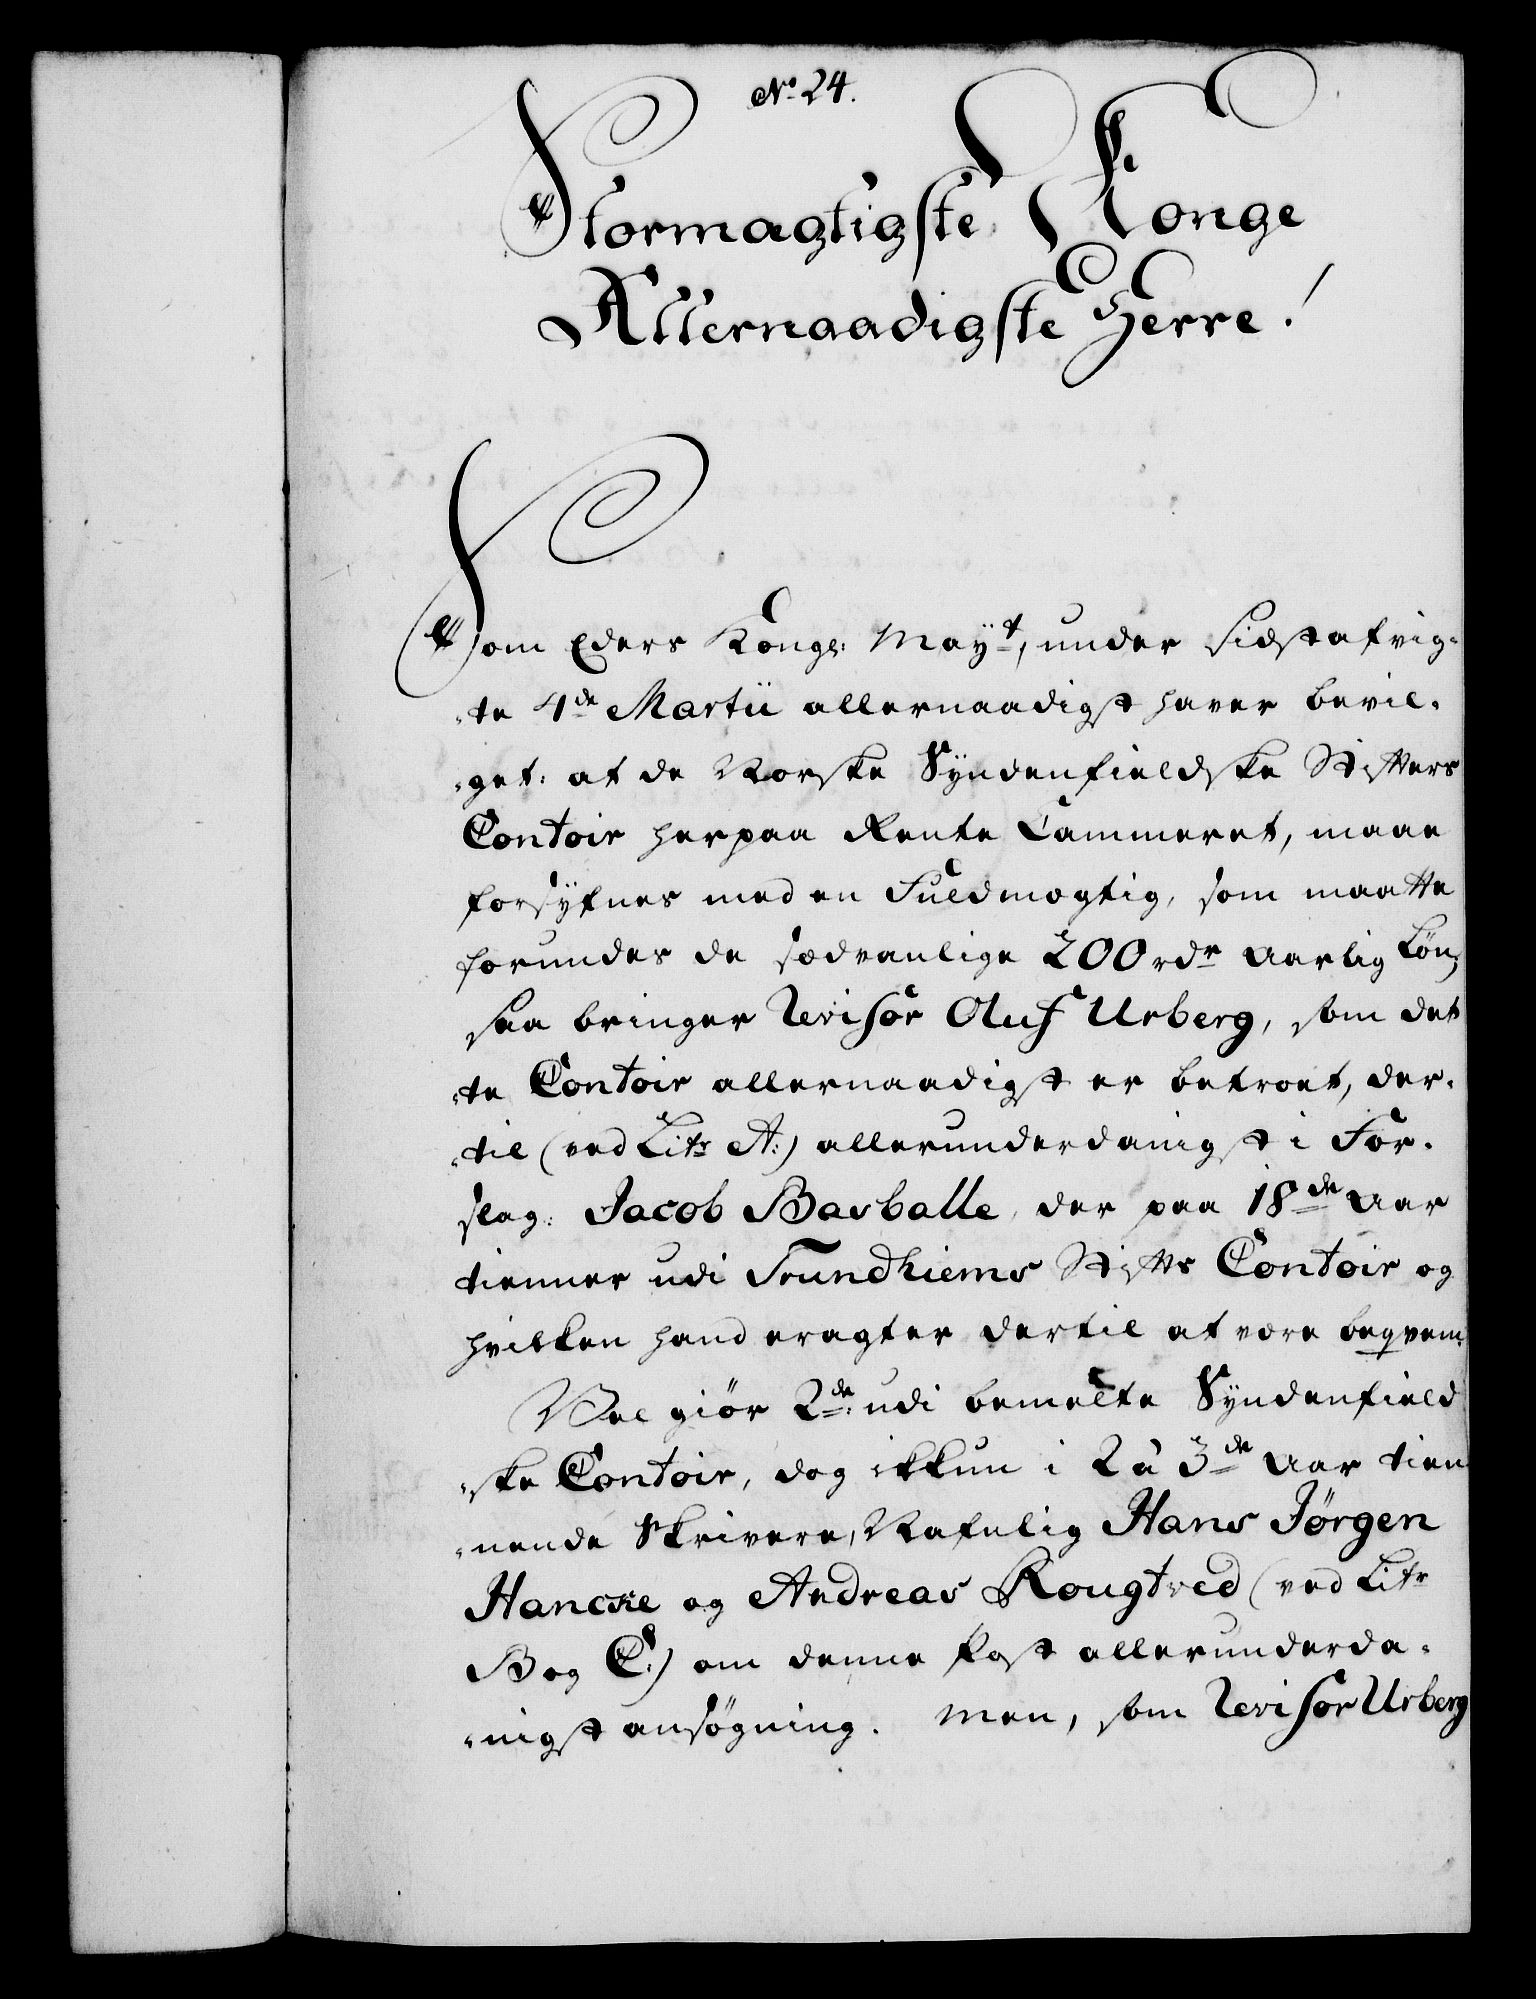 No. 24.
Stormægtigste Konge
Allernaadigste Herre!
Som Eders Kongl: Mayt, under sidstafvig-
-te 4de Martii allernaadigst haver bevil-
-get: at de Norske Syndenfieldske Stifters
Contoir herpaa Rente Cammeret, maae
forsyfnes med en Fuldmægtig, som maatte
forundes de sædvanlige 200 rdr aarlig Løn;
saa bringer Revisor Oluf Urberg, som det
-te Contoir allernaadigst er betroet, der-
-til (ved Litr A:) allerunderdanigst i For-
slag: Jacob Barballe, der paa 18de Aar
tienner udi Trundhiems Stifts Contoir og
hvilken hand eragter dertil at være beqvem.
Vel giør 2de: udi bemelte Syndenfield
-ske Contoir, dog ikkun i 2 à 3de Aar tien
-nende Skrivere, Nafnlig Hans Jørgen
Hancke og Andreas Rougtved (ved Litr
B og C:) om denne Post allerunderda-
-nigst ansøgning. Men, som Revisor Urberg